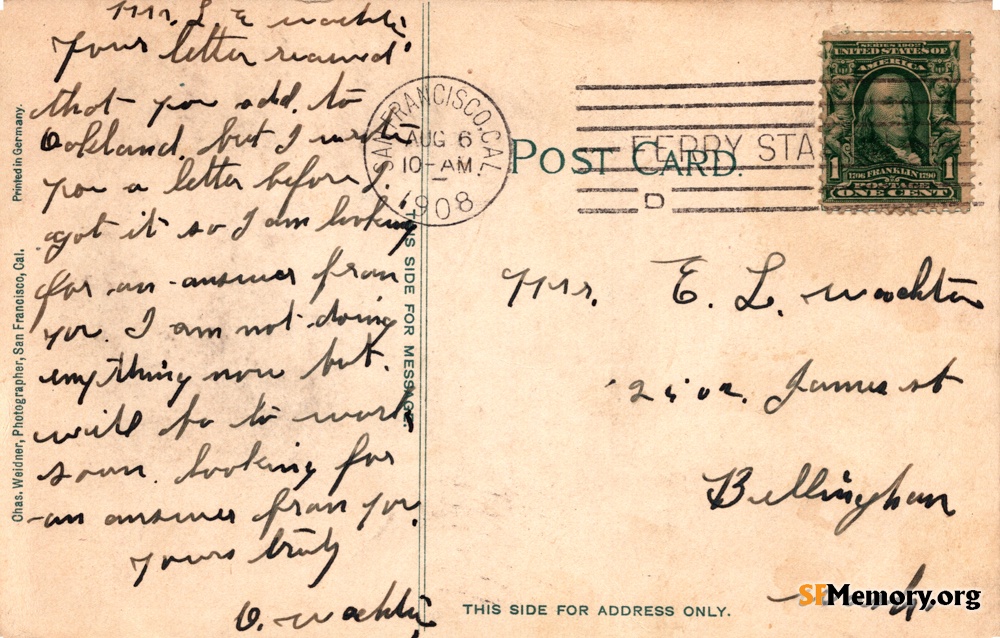 Mrs. L E
Your letter received
that you add. to
Oakland, but I write
you a letter before I.
got it so I am looking
for an answer from
you. I am not doing
anything now but.
will go to work
soon. looking for
an answer from you.
yours truly
O.
Printed in Germany.
Chas. Weidner, Photographer, San Francisco, Cal.
THIS SIDE FOR MESSAGE.
SAN FRANCISCO, CAL.
AUG 6
10-AM
1908
FERRY STA
D
POST CARD.
SERIES 1902
UNITED STATES OF
AMERICA
1 1706 FRANKLIN 1790 1
POSTAGE
ONE CENT
Mrs. E. L.
James st
Bellingham
Wash.
THIS SIDE FOR ADDRESS ONLY.
SFMemory.org